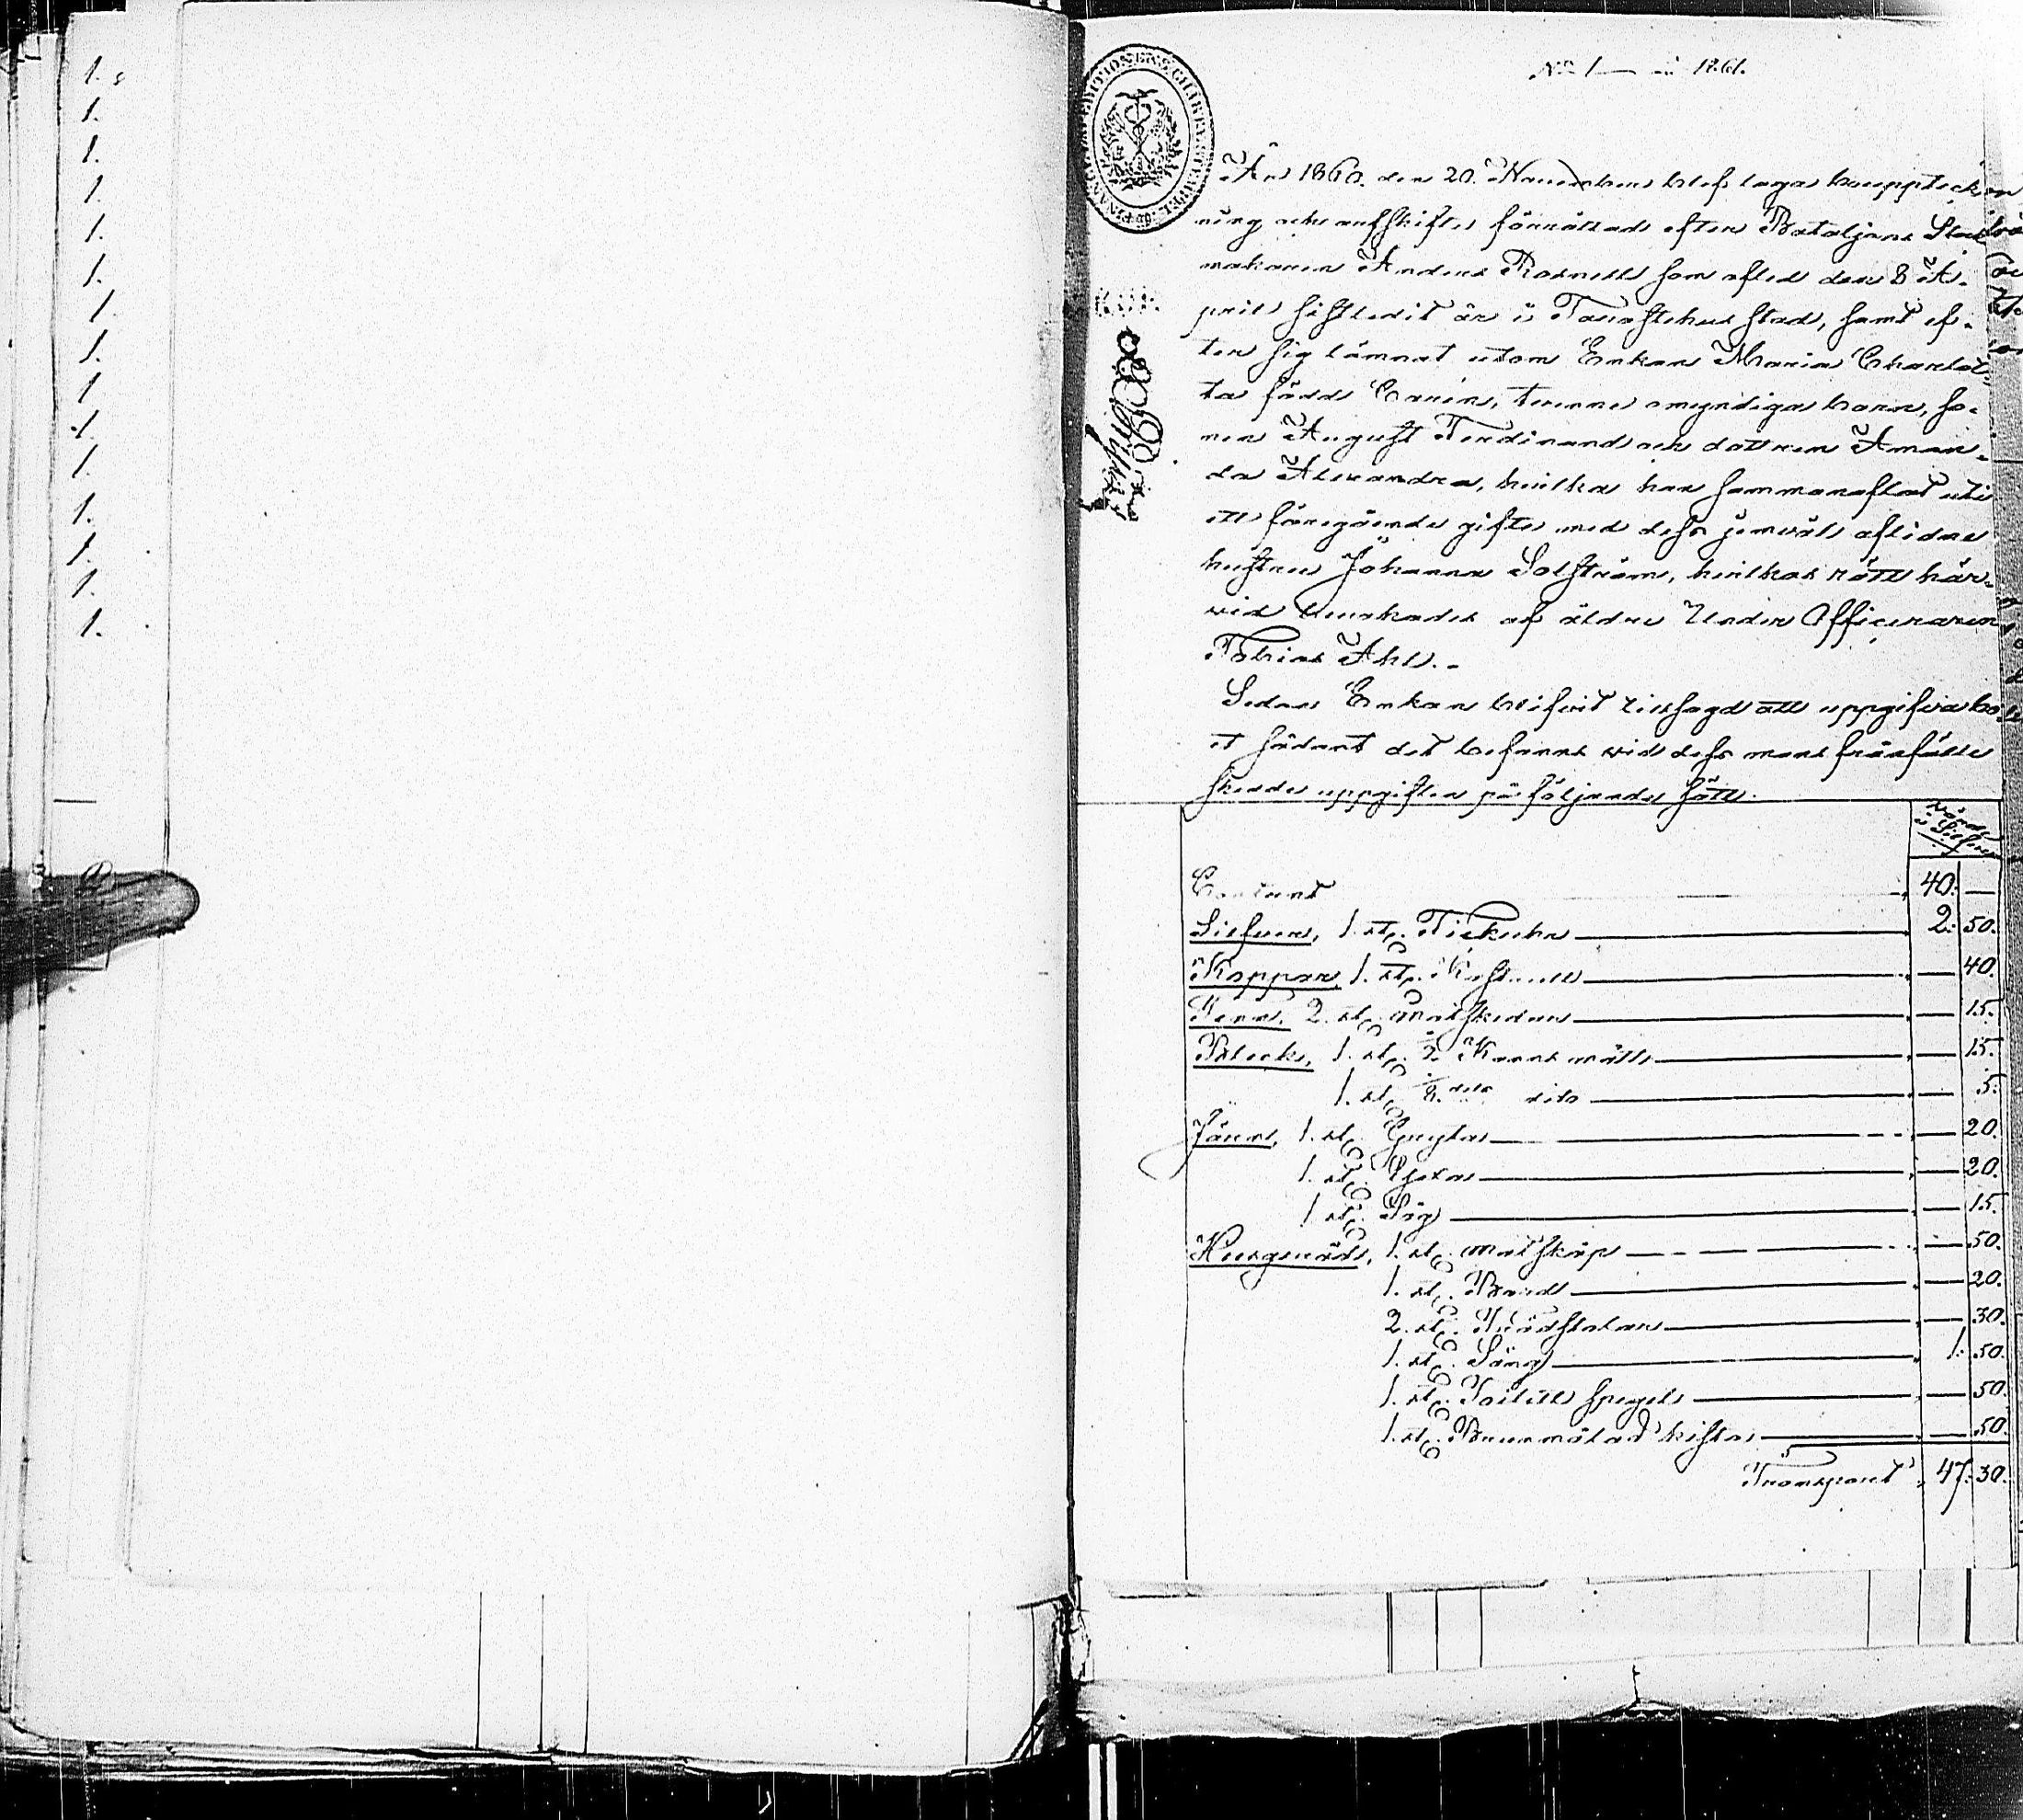 1.
1.
1.
1.
1.
1.
1.
1.
1
1.
1.
1.
1.
1.
1.
No 1 1861.
År 1860. den 20. November blef laga bouppteck-
ning och arfskifte förrättad efter Bataljons Stock
makaren Anders Rosnell som afled den 8 A-
pril sistledit år i Tavastehus stad, samt ef-
ter sig lämnat utom Enkan Maria Charlot-
ta född Carén, tvenne omyndiga barn, so-
nen August Ferdinand och dottren Aman-
da Alexandra, hvilka han sammanaflat uti
ett föregående gifte med dess jemväl aflidne
hustru Johanna Solström, hvilkas rätt här-
vid bevakades af äldre Under Officeraren
Tobias Ahl.
Sedan Enkan blifvit tillsagd att uppgifva bo-
et sådant det befanns vid dess mans frånfälle
skedde uppgiften på följande sätt.
Värde i Silfver
Contant 40. —
Silfver, 1. st. Fickuhr 2. 50.
Koppar, 1. st. Kastrull — 40.
Tenn. 2. st. matskedar — 15.
Bleck, 1. st. Kanns mått — 15.
1. st. dels dito — 5.
Järn, 1. st. Gryta — 20.
1. st. Yxa — 20.
1 st. Såg — 15.
Husgeråd, 1. st. matskåp — 50.
1. st. Bord — 20.
2. st. Trädstolar — 30.
1. st. Säng 1. 50.
1. st. Toilett spegel — 50.
1. st. Brunmålad kista — 50.
Transport 47. 30.